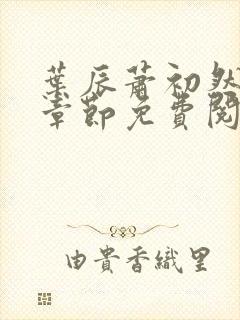 葉辰蕭初然
章節免費閱
由貴香織里